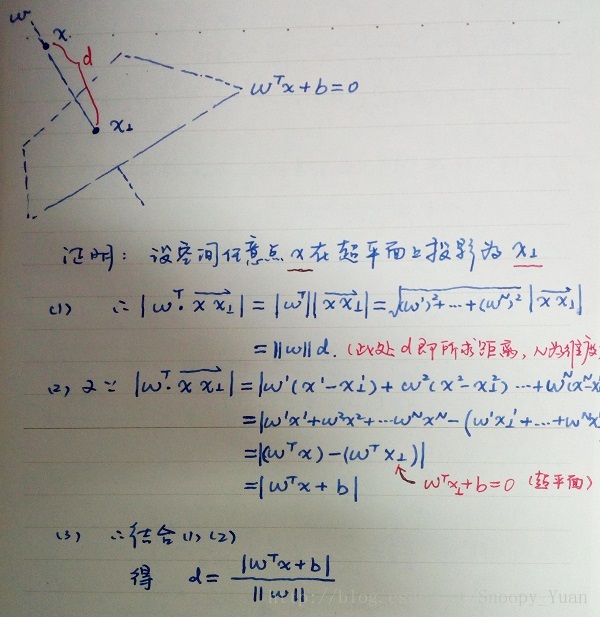 w
x.
d
wᵀx+b=0
x⊥
证明: 设空间任意点 x 在超平面上投影为 x⊥
(1) ∵ |wᵀ·xx⊥| = |wᵀ||xx⊥| = √(w¹)²+…+(wᴺ)² |xx⊥|
= ||w|| d. (此处 d 即所求距离, N为维度
(2) 又∵ |wᵀ·xx⊥| = |w¹(x¹-x⊥¹) + w²(x²-x⊥²) …+wᴺ(xᴺ-x
= |w¹x¹+w²x²+…wᴺxᴺ-(w¹x⊥¹+…+wᴺx
= |(wᵀx)-(wᵀx⊥)|
= |wᵀx+b| wᵀx⊥+b=0 (超平面)
(3) ∴结合(1)(2)
得 d = |wᵀx+b| / ||w||
http://blog.cs
Snoopy_Yuan